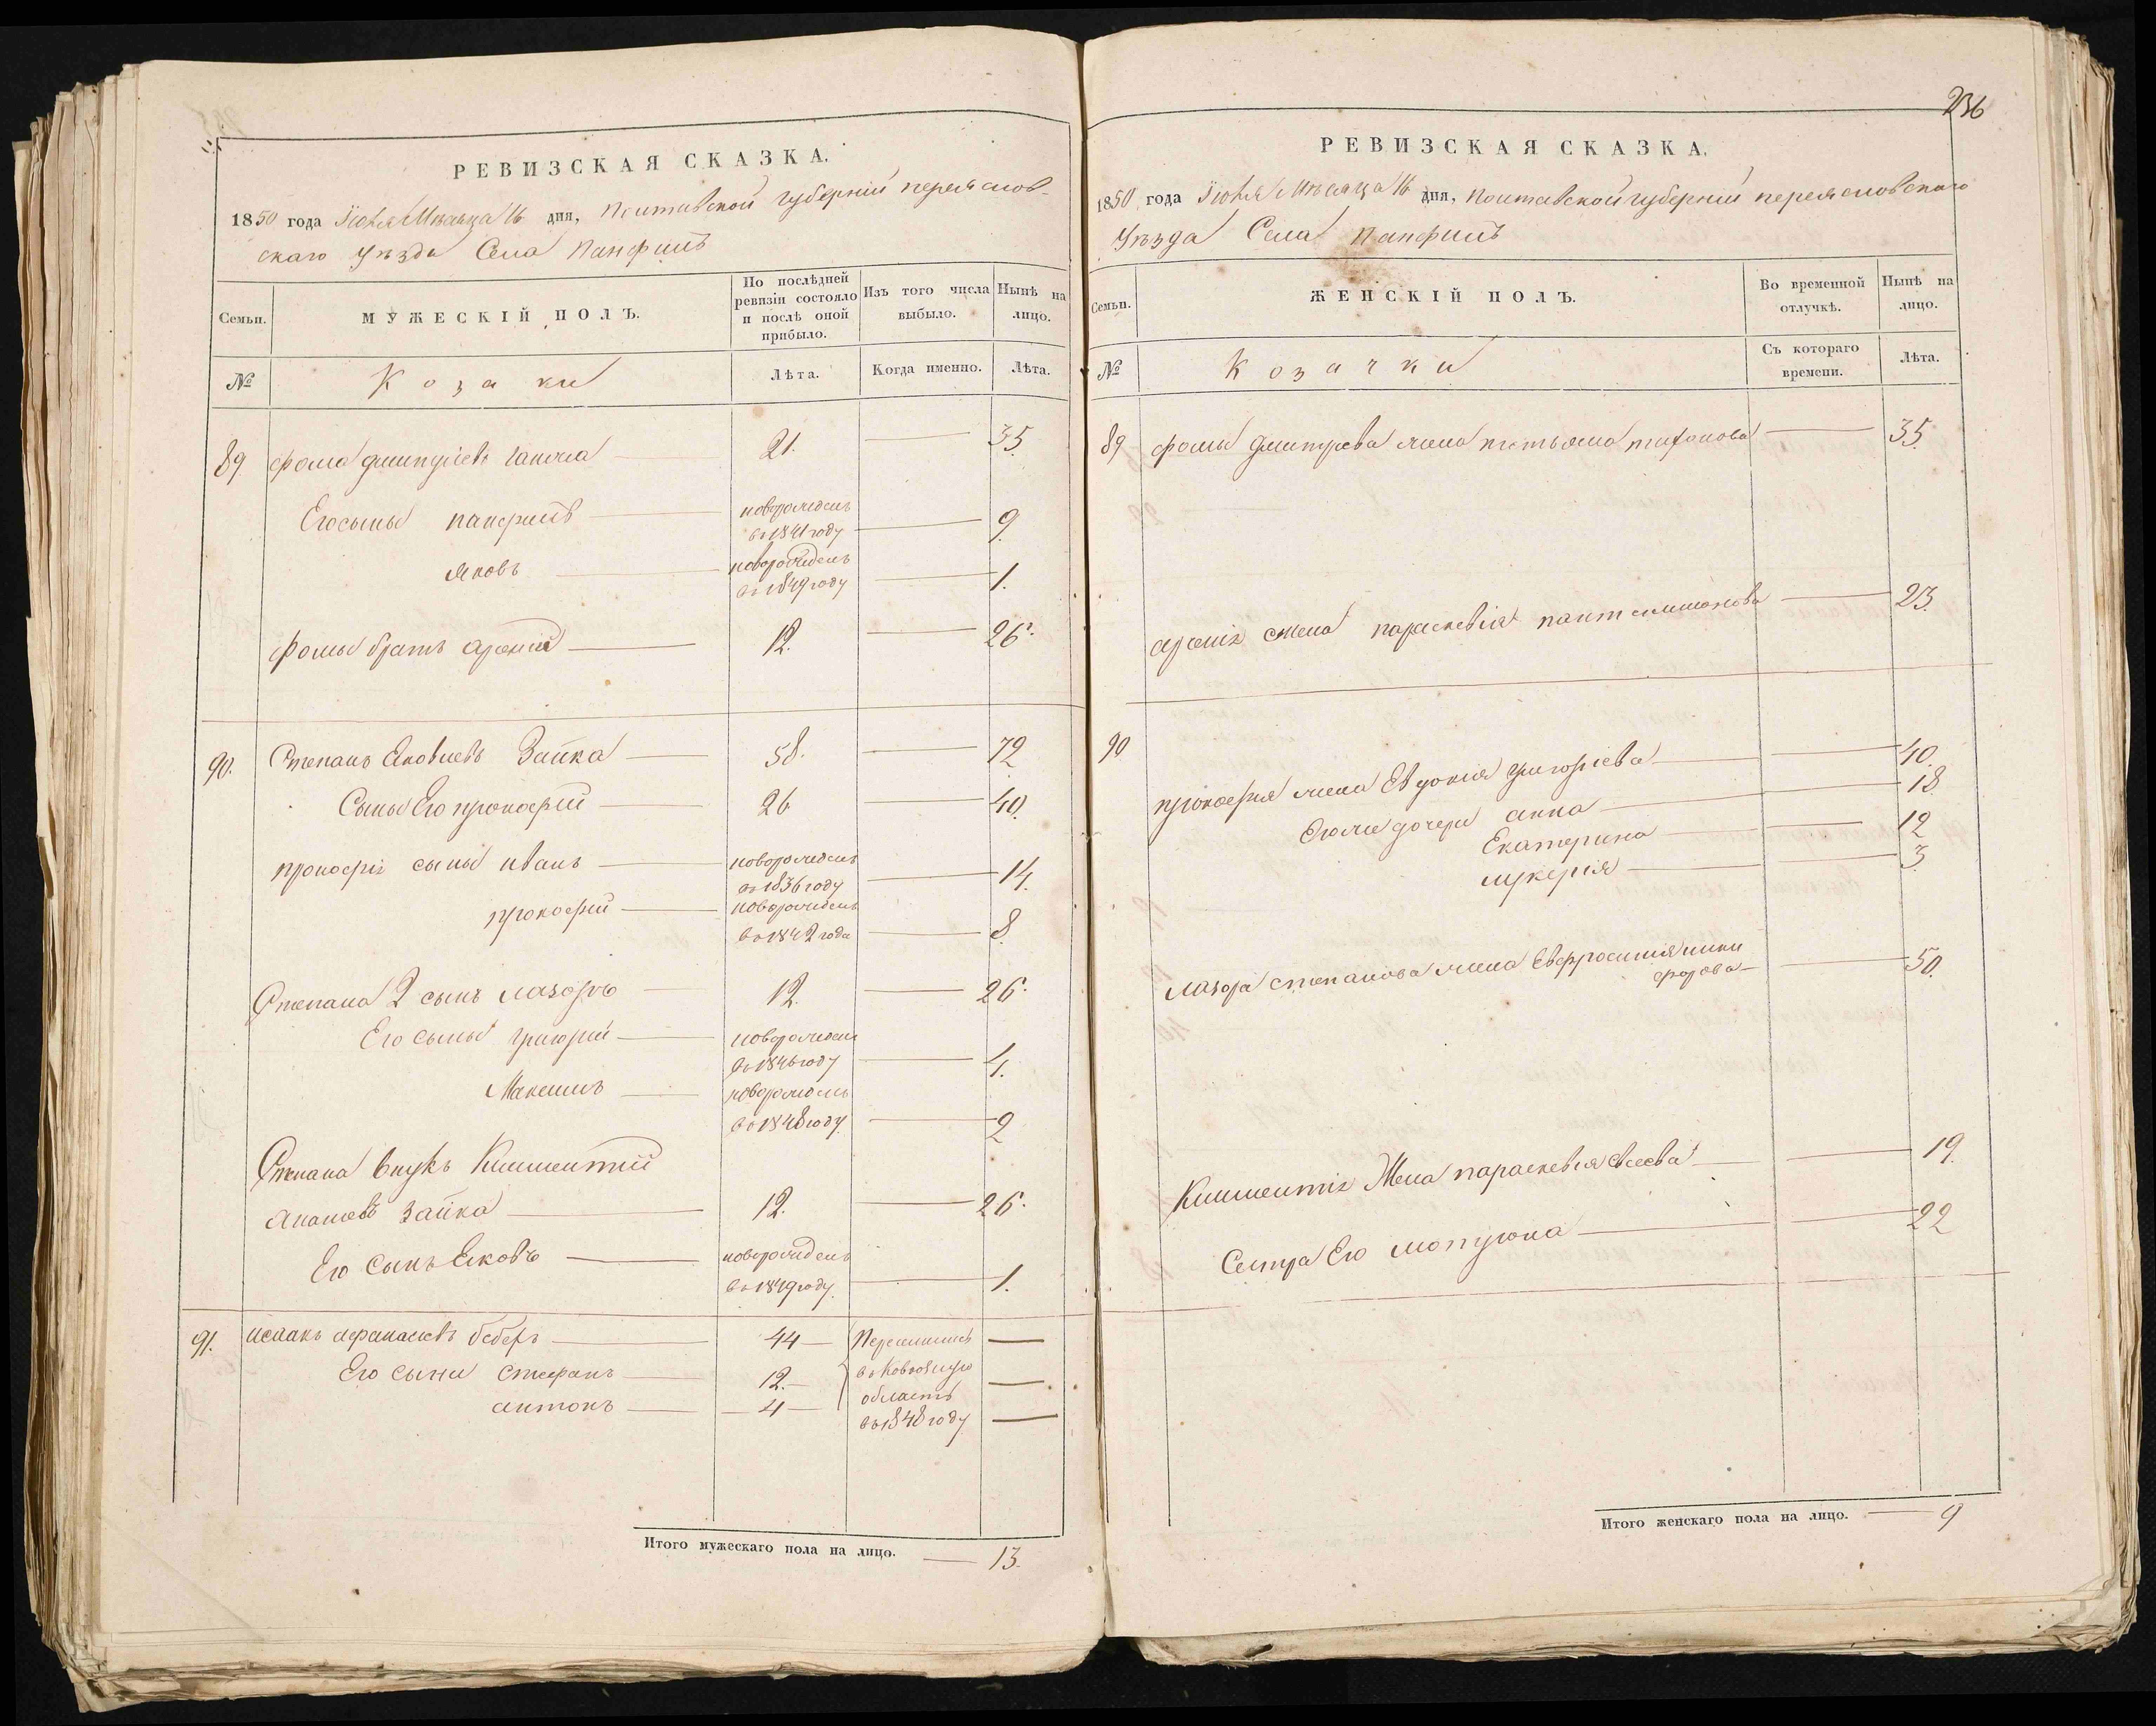 РЕВИЗСКАЯ СКАЗКА.
1850 года Іюля Мѣсяца 16 дня, Полтавской губерніи переяслов-
скаго Уѣзда Села Панфилъ
Семьи.
МУЖЕСКІЙ ПОЛЪ.
По послѣдней ревизіи состояло и послѣ оной прибыло.
Изъ того числа выбыло.
Нынѣ на лицо.
№
Козаки
Лѣта.
Когда именно.
Лѣта.
89 фома дмитріевъ 21. 35
Его сыны панфилъ новорожденъ во 1841 году 9
яковъ новорожденъ во 1849 году 1.
фомы братъ арсеній 12. 26.
90. Степанъ Яковлевъ Зайка 58. 72
Сыны Его прокофій 26 40.
прокофія сыны иванъ новорожденъ во 1836 году 14.
прокофій новорожденъ во 1842 года 8.
Степана 2 сынъ лазоръ 12. 26.
Его сыны григорій новорожденъ во 1846 году 4.
Максимъ новорожденъ во 1848 году 2
Степана внукъ Климентій
зайка 12. 26.
Его сынъ Яковъ новорожденъ во 1849 году 1.
91. исаакъ афанасіевъ беберъ 44 Переселились
Его сыни стефанъ 12. область
антонъ 4 во 1848 году
Итого мужескаго пола на лицо. 13.
236
РЕВИЗСКАЯ СКАЗКА.
1850 года Іюля Мѣсяца 16 дня, Полтавской губерніи переясловскаго
Уѣзда Села Панфилъ
Семьи.
ЖЕНСКІЙ ПОЛЪ.
Во временной отлучкѣ.
Нынѣ на лицо.
№
Козачки
Съ котораго времени.
Лѣта.
89 фомы дмитрева жена татьяна тифонова 35
арсенія жена параскевія пантелимонова 23.
90 прокофія жена Евдокія григоріева 40.
Его же дочери анна 18
Екатерина 12
лукерія 3.
лазоря степанова жена Евфросинія ники
форова 50.
Климентія Жена параскевія 19.
Сестра Его мотрона 22
Итого женскаго пола на лицо. 9